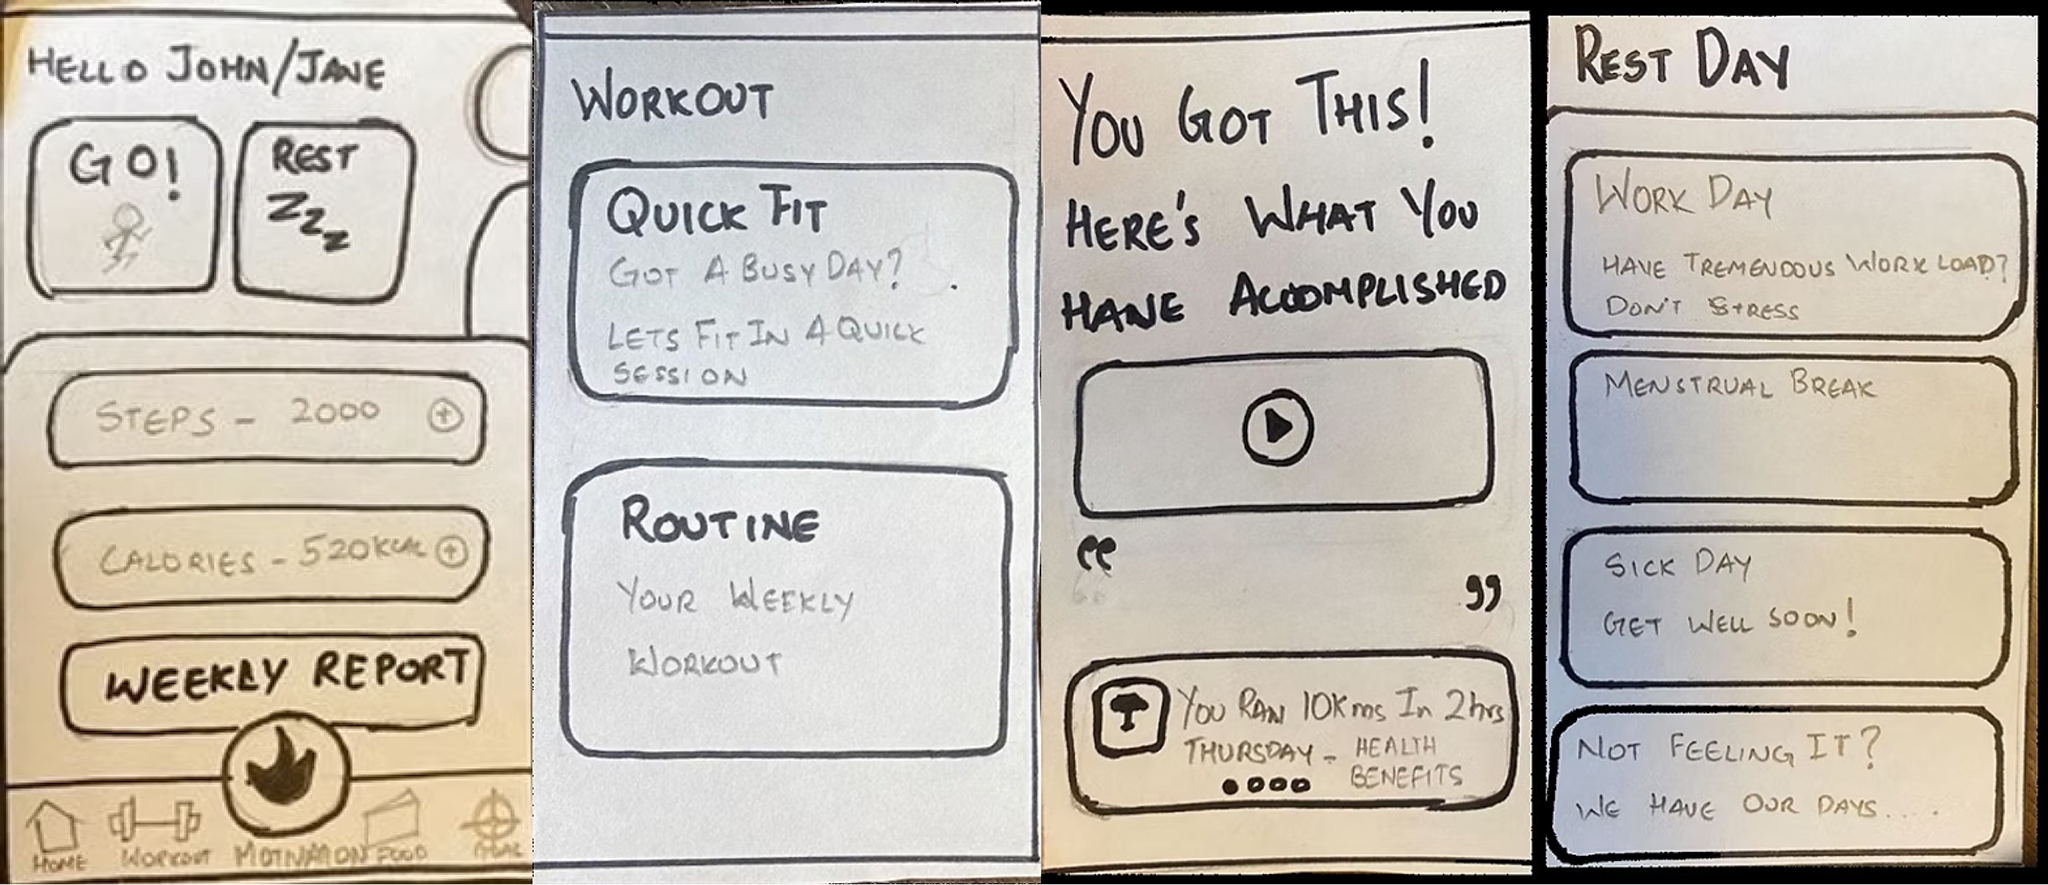 HELLO JOHN/JANE
GO!
REST
ZZZ
STEPS - 2000
CALORIES - 520KCAL
WEEKLY REPORT
HOME
WORKOUT
MOTIVATION
FOOD
WORKOUT
QUICK FIT
GOT A BUSY DAY?
LETS FIT IN A QUICK
SESSION
ROUTINE
YOUR WEEKLY
WORKOUT
YOU GOT THIS!
HERE'S WHAT YOU
HANE ACCOMPLISHED
YOU RAN 10Kms In 2hrs
THURSDAY - HEALTH
BENEFITS
REST DAY
WORK DAY
HAVE TREMENDOUS WORK LOAD?
DON'T STRESS
MENSTRUAL BREAK
SICK DAY
GET WELL SOON!
NOT FEELING IT?
WE HAVE OUR DAYS.....